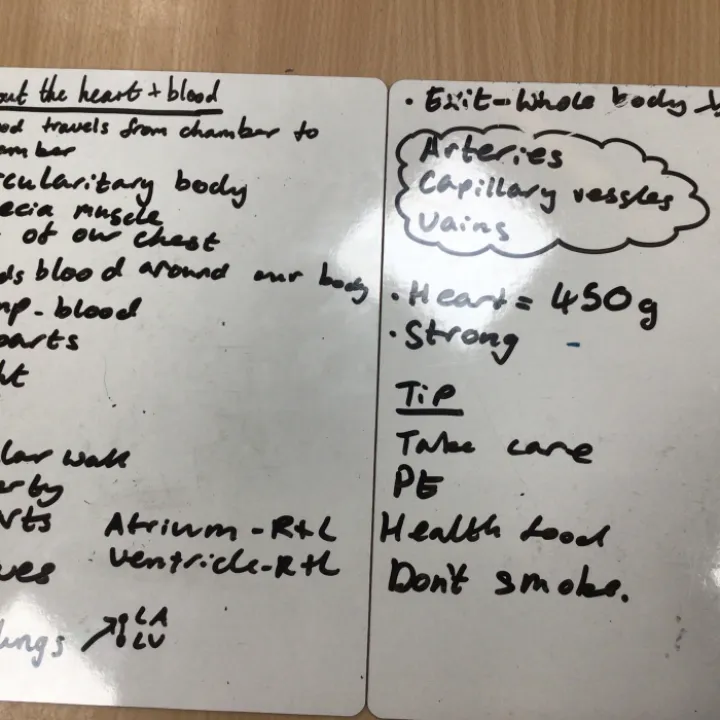 out the heart + blood
ood travels from chamber to
amber
rcularitary body
ecia muscle
of our chest
ds blood around our body
mp - blood
parts
ht
lar wall
erby
arts
Atrium - R+L
ves
Ventricle - R+L
lungs
LA
LV
• Exit - Whole body
Arteries
Capillary vessles
Vains
• Heart = 450g
• Strong -
Tip
Take care
PE
Health food
Don't smoke.